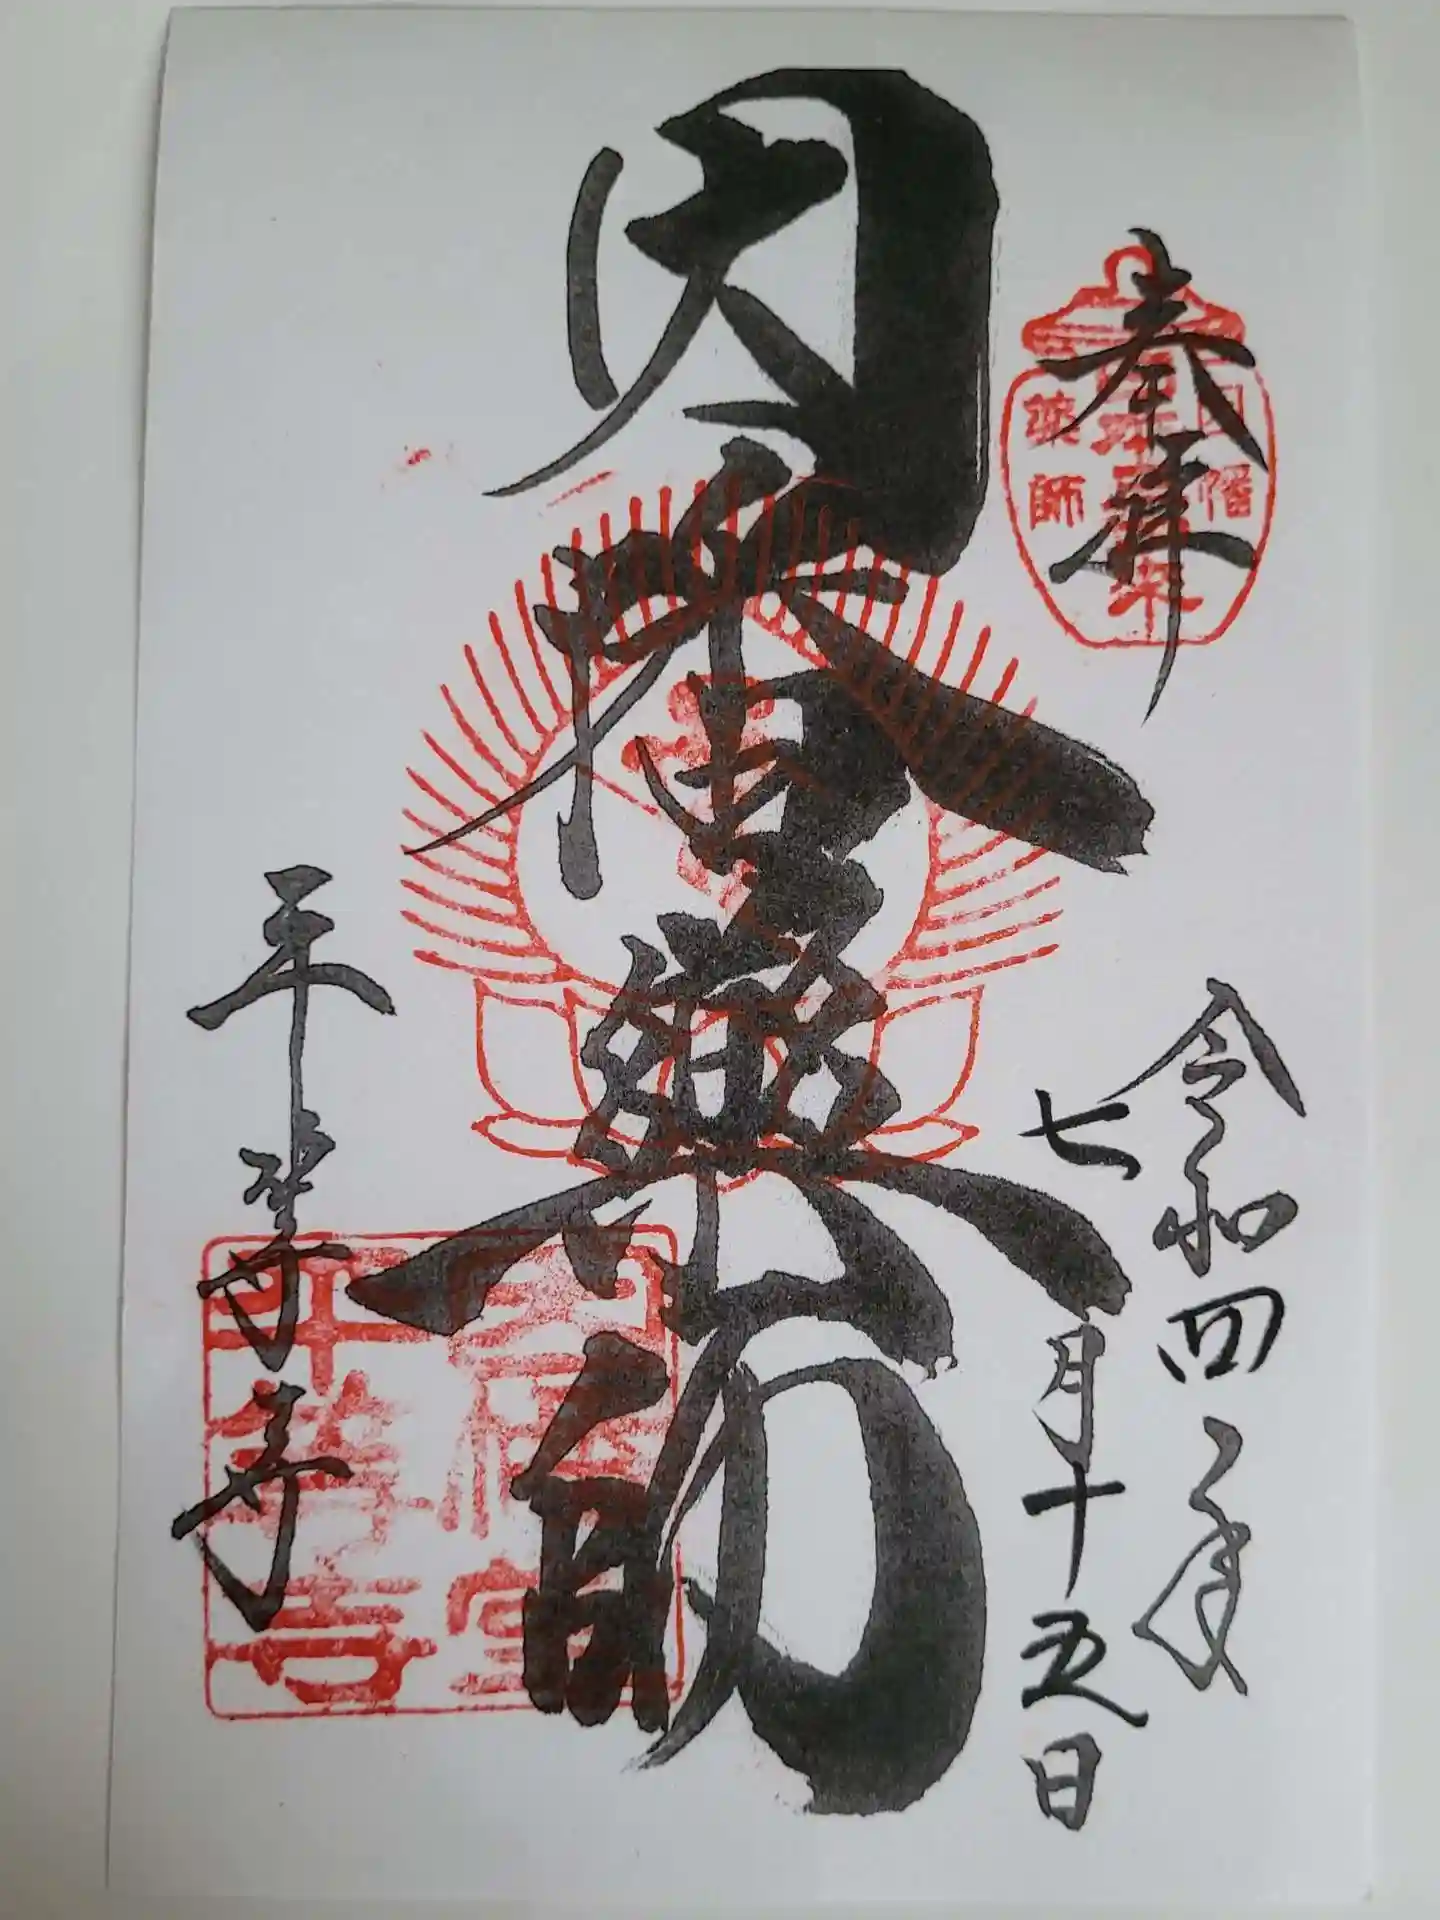 奉拝
因幡
薬師
令和四年
七月十五日
因幡薬師
平等寺
平等寺